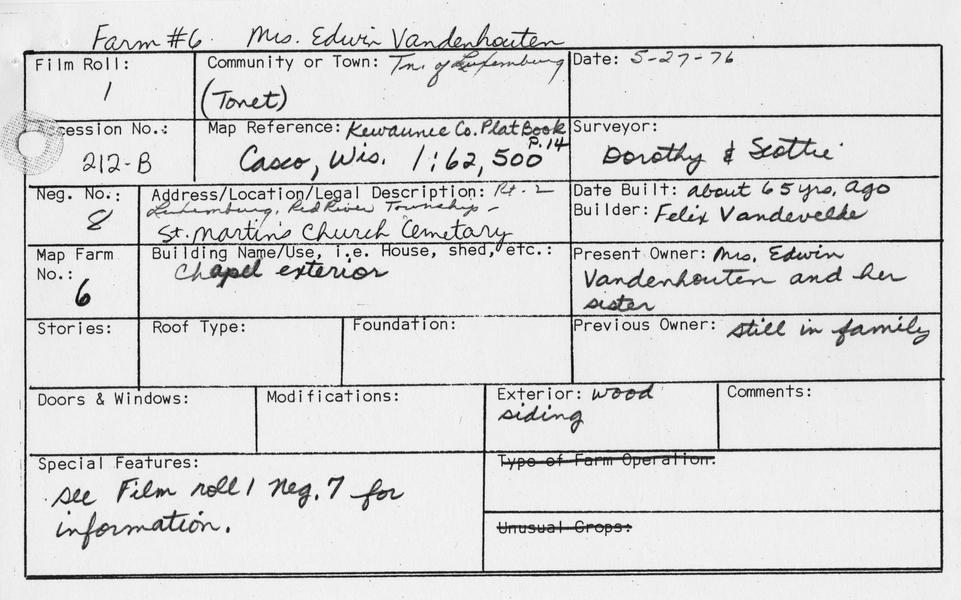 Farm #6. Mrs. Edwin Vandenhouten
Film Roll:
1
Community or Town: Tn. of Luxemburg
(Tonet)
Date: 5-27-76
cession No.:
212-B
Map Reference: Kewaunee Co. Plat Book
P. 14
Casco, Wis. 1:62,500
Surveyor:
Dorothy & Scottie
Neg. No.:
8
Address/Location/Legal Description: Rt-2
Luxemburg, Red River Township -
St. Martin's Church Cemetary
Date Built: about 65 yrs. ago
Builder: Felix Vandevelde
Map Farm
No.:
6
Building Name/Use, i.e. House, shed, etc.:
Chapel exterior
Present Owner: Mrs. Edwin
Vandenhouten and her
sister
Stories:
Roof Type:
Foundation:
Previous Owner: still in family
Doors & Windows:
Modifications:
Exterior: wood
siding
Comments:
Special Features:
see Film roll 1 Neg. 7 for
information.
Type of Farm Operation:
Unusual Crops: